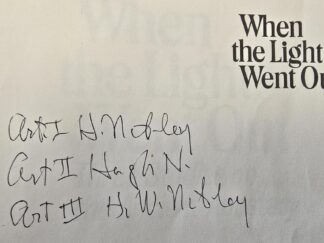 When
the Light
Went Ou
Art I H. Nibley
Art II Hugh N.
Art III H. W. Nibley